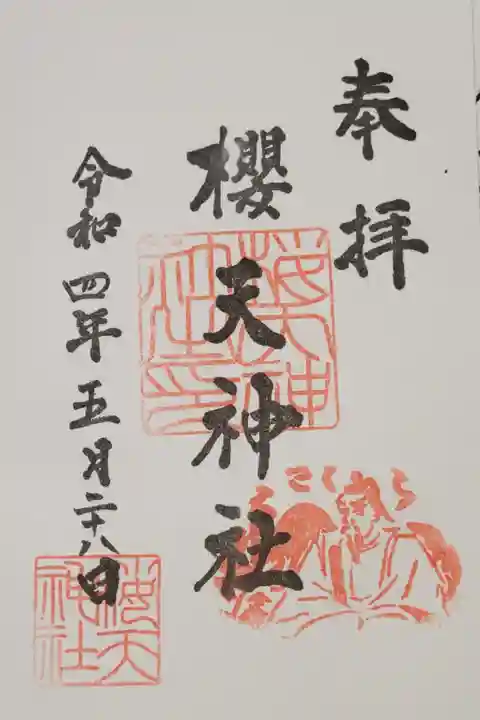 奉拝
櫻天神社
令和四年五月二十八日
さくら
櫻天
神社